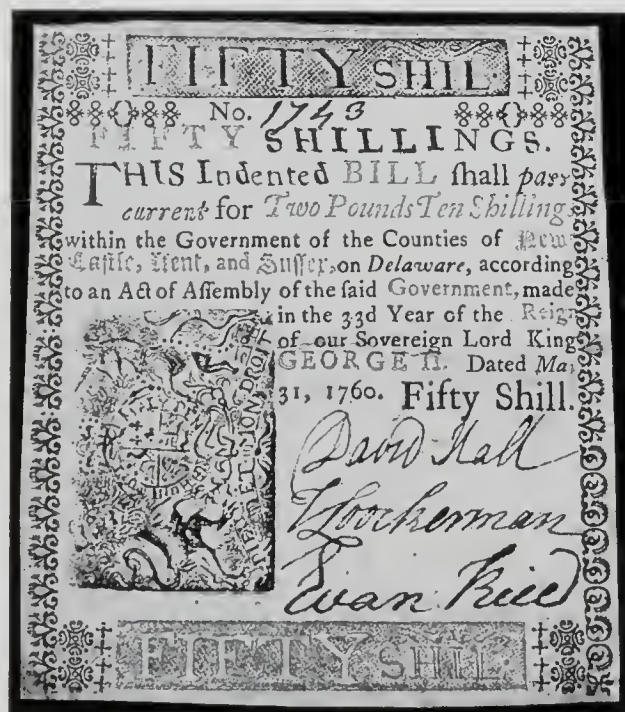 FIFTY SHIL.
No. 1743
FIFTY SHILLINGS.
THIS Indented BILL ſhall paſs
current for Two Pounds Ten Shillings
within the Government of the Counties of New
Caſtle, Kent, and Suſſex, on Delaware, according
to an Act of Aſſembly of the ſaid Government, made
in the 33d Year of the Reign
of our Sovereign Lord King
GEORGE II. Dated May
31, 1760. Fifty Shill.
DIEU ET MON DROIT
David Hall
Evan Rice
FIFTY SHIL.